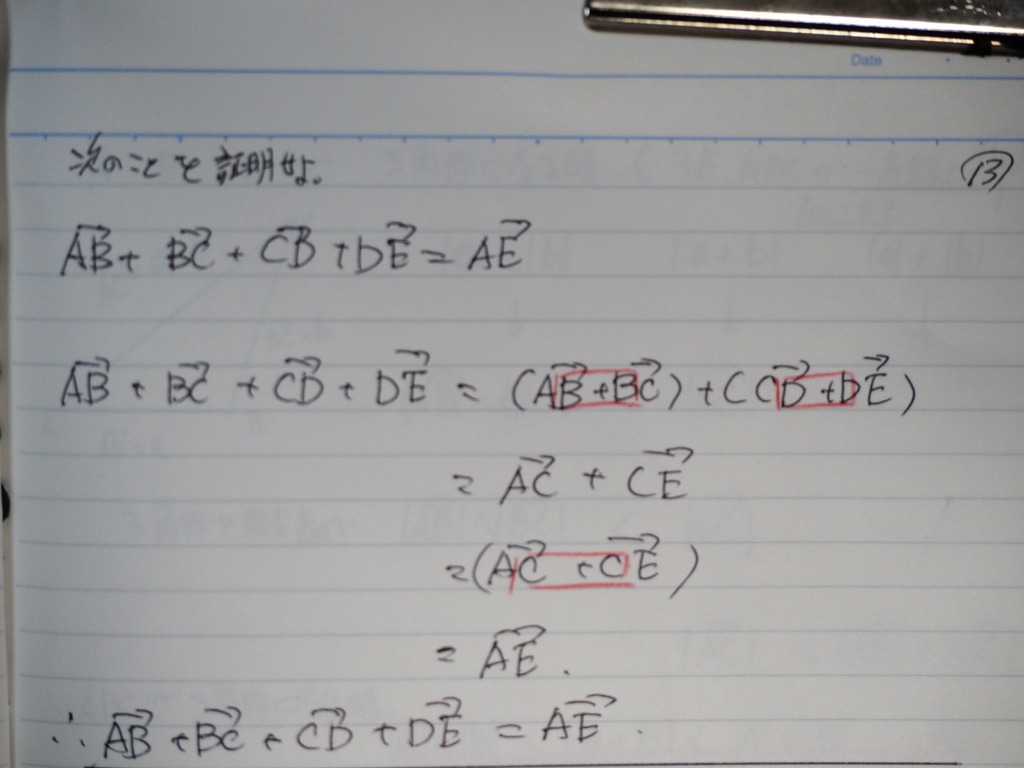 Date
次のことを証明せよ。 ⑬
→AB + →BC + →CD + →DE = →AE
→AB + →BC + →CD + →DE = (→AB + →BC) + (→CD + →DE)
= →AC + →CE
= (→AC + →CE)
= →AE.
∴ →AB + →BC + →CD + →DE = →AE.